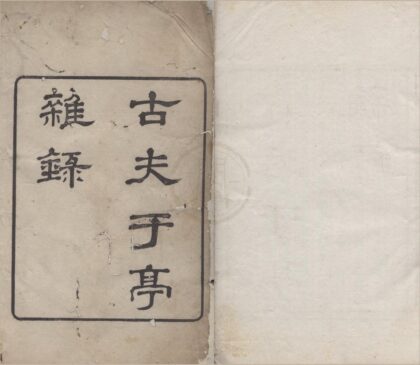 古夫于亭
雜錄